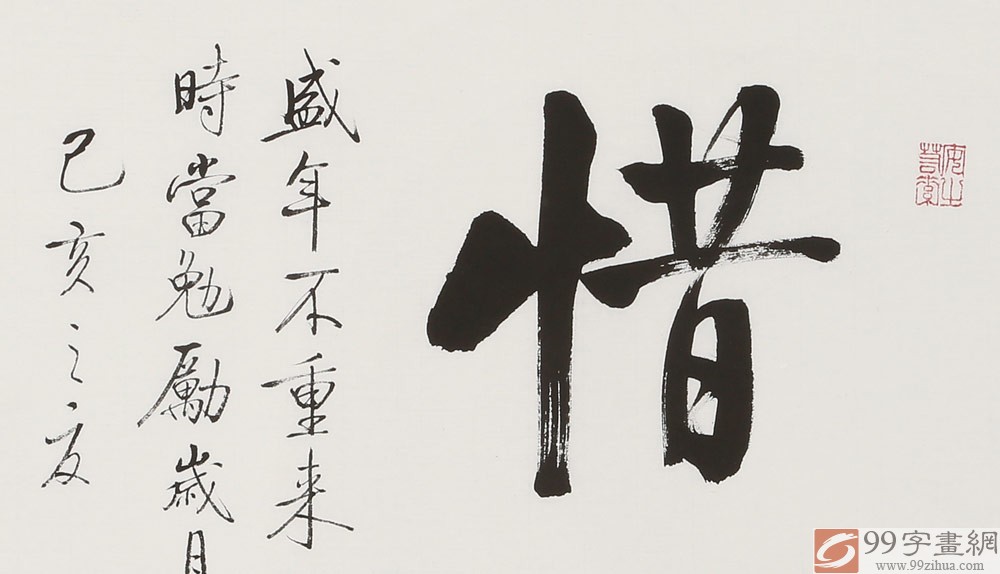 安之若素
惜
盛年不重来
時當勉勵歲月
己亥之夏
99字畫網
www.99zihua.com